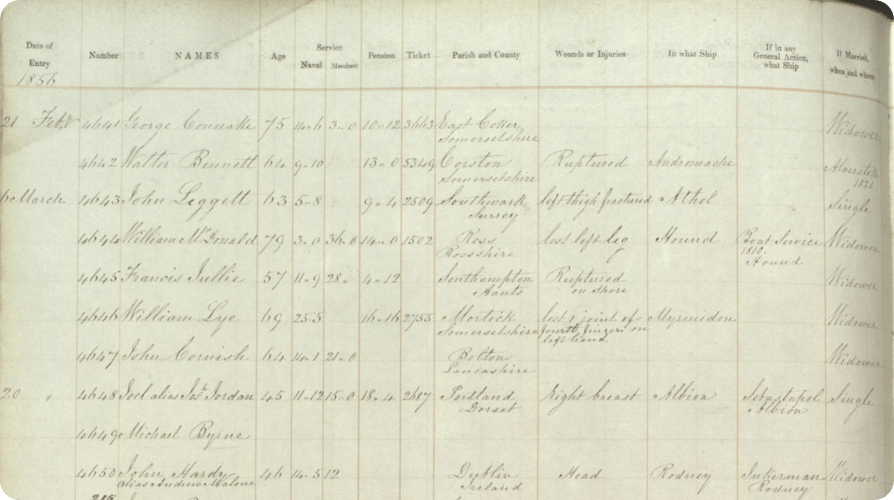 Date of Entry Number NAMES Age Service Naval Merchant Pension Ticket Parish and County Wounds or Injuries In what Ship If in any General Action, what Ship If Married, when and where
1856
21 Feby 4641 George Connake 75 14-6 3-0 10-12 3663 East Coker Widower
Somersetshire
4642 Walter Bennett 64 9-10 13-0 5349 Corston Ruptured Andromache
Somersetshire 1821
6 March 4643 John Leggett 63 5-8 9-4 2509 Southwark left thigh fractured Athol Single
Surrey
4644 William McDonald 79 3-0 36-0 14-0 1502 Ross lost left leg Hound Boat Service Widower
Rossshire 1810
Hound
4645 Francis Jullie 57 11-9 28- 4-12 Southampton Ruptured Widower
Hants on Shore
4646 William Lye 69 25-5 16-16 2755 Martock lost 1 joint of Myrmidon Widower
Somersetshire fourth finger on
left hand
4647 John Cornish 64 14-1 21-0 Bolton Widower
Lancashire
20 " 4648 Joel alias Jas. Jordan 45 11-12 15-0 18-4 2887 Portland Right breast Albion Sebastapol Single
Dorset Albion
4649 Michael Byrne
4650 John Hardy 46 14-5 12 Dublin Head Rodney Inkerman Widower
alias Andrew Malone Ireland Rodney